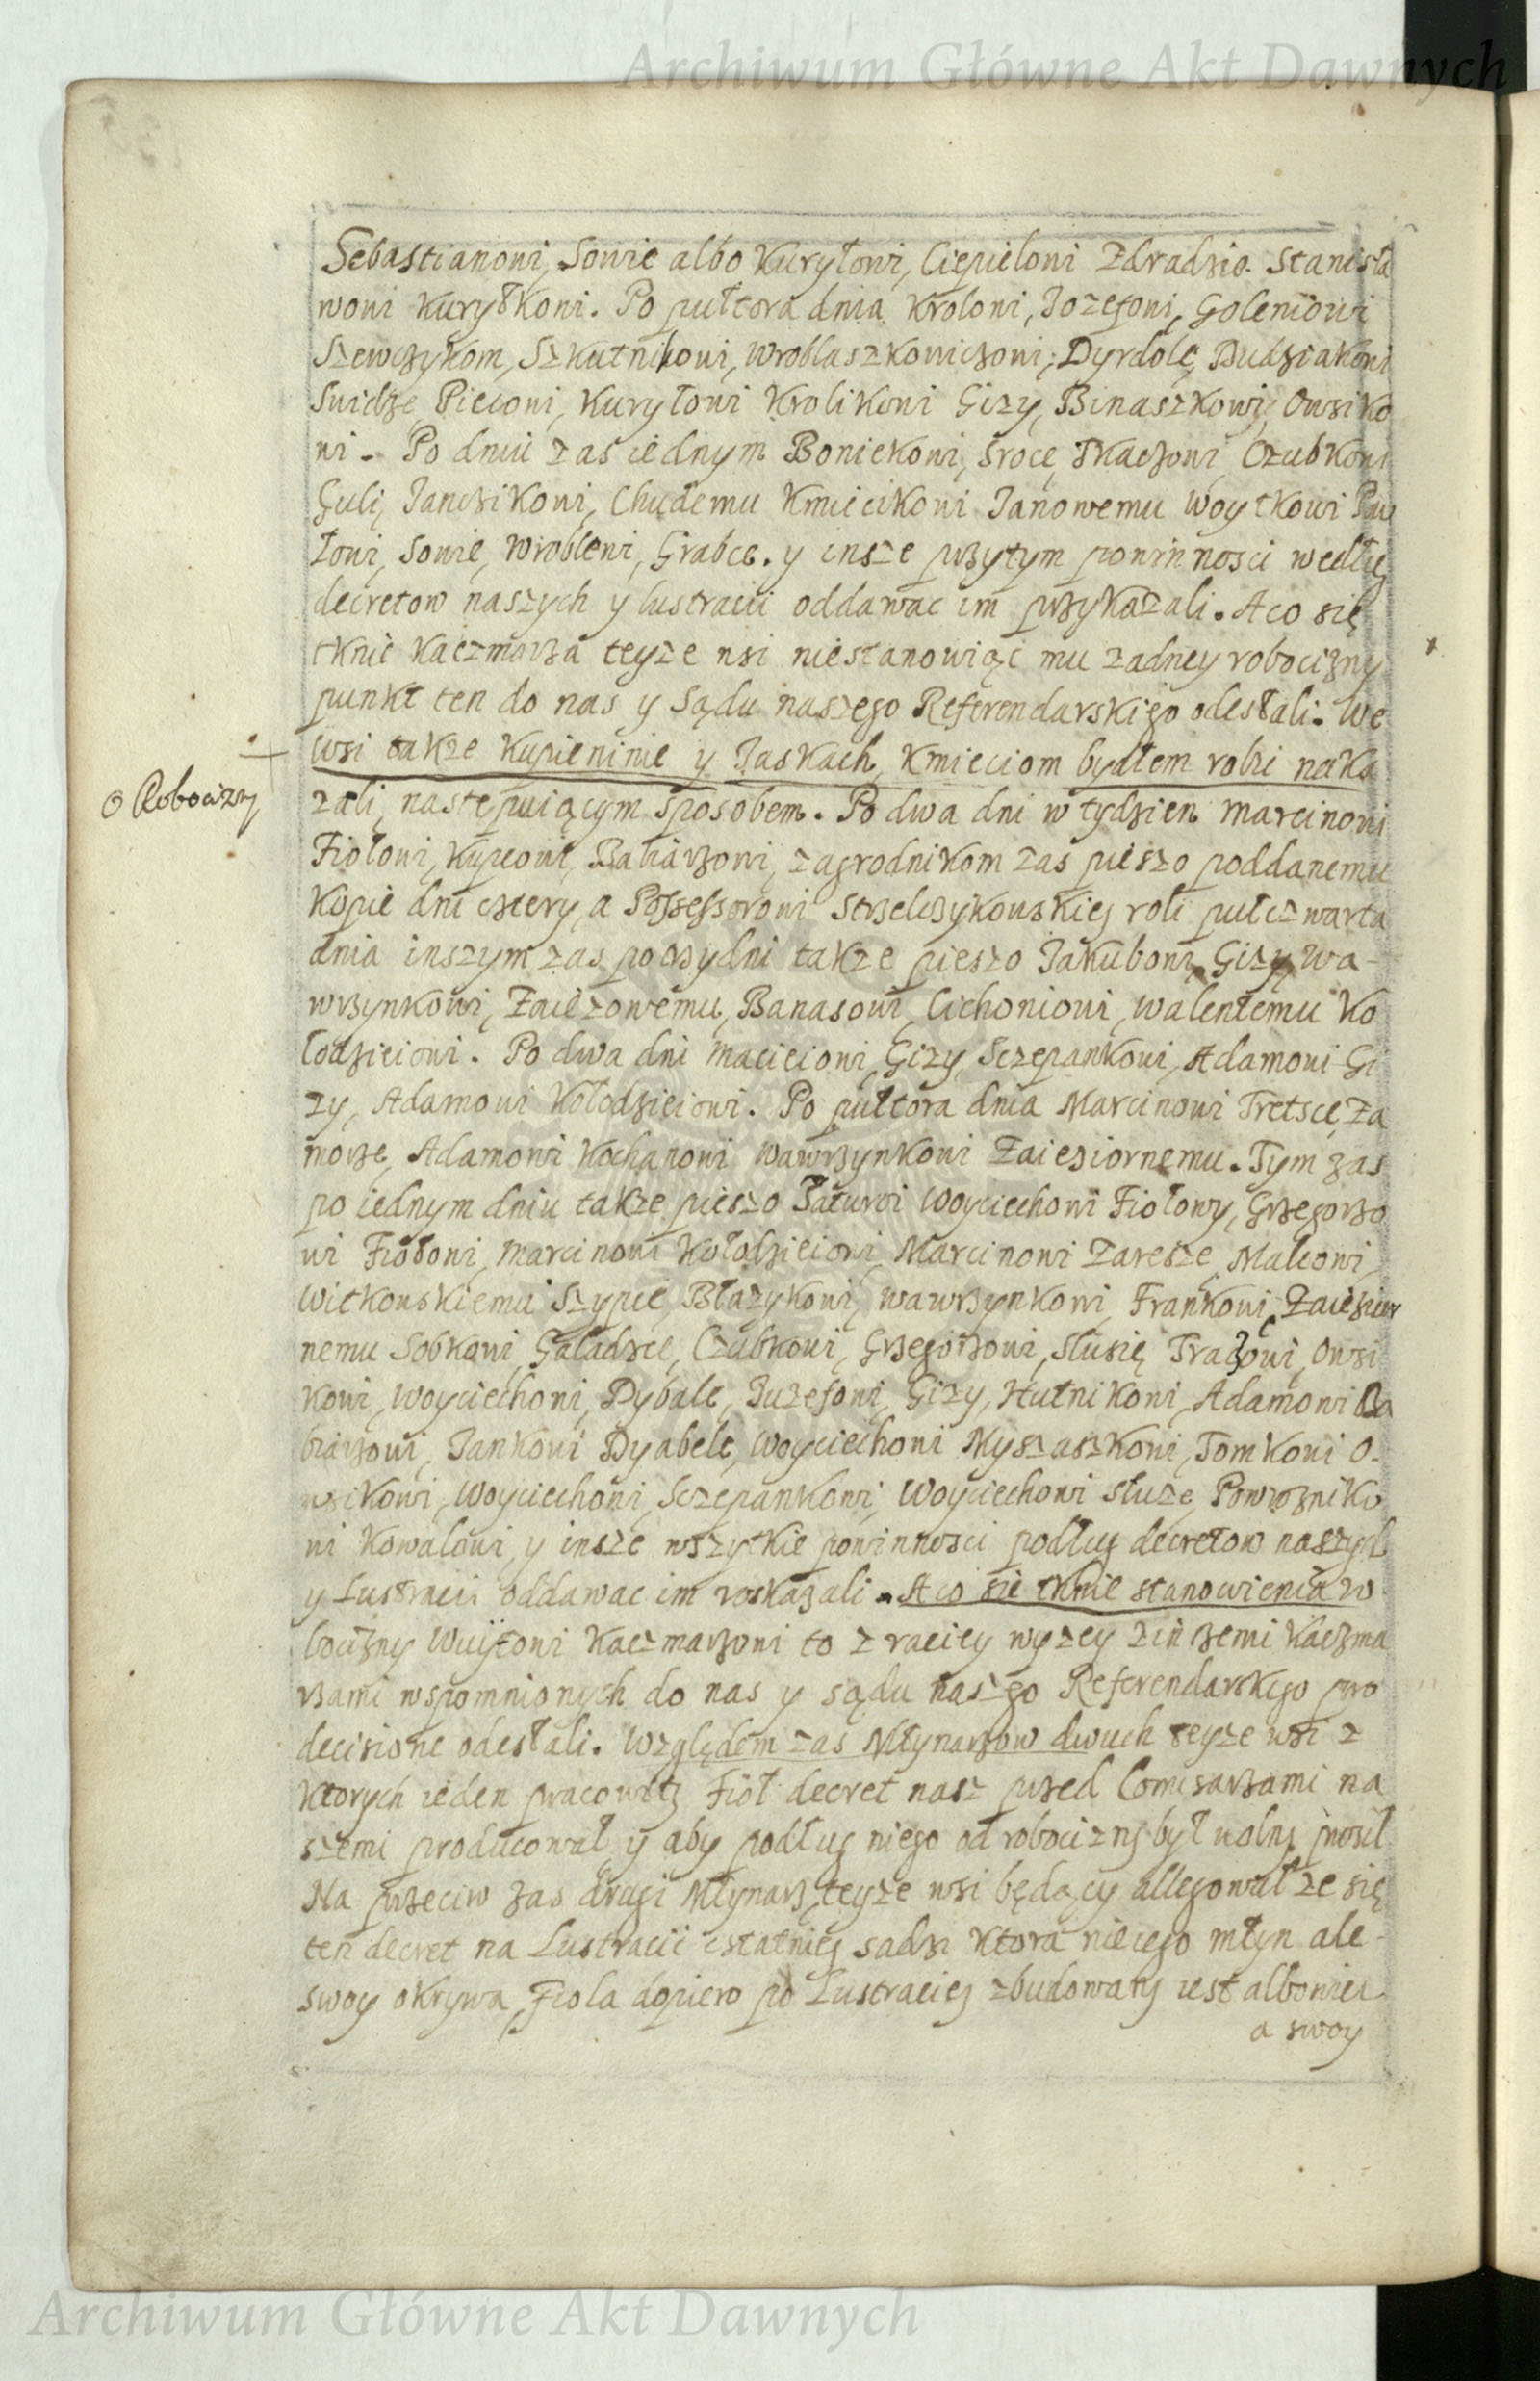 Archiwum Główne Akt Dawnych
Sebastianowi, Sowie albo Kuryłowi, Ciepielowi Zdradzie. Stanisła
wowi Kuryłkowi. Po pułtora dnia Krolowi, Jozefowi, Goleniowi
Szewczykom, Szkutnikowi, Wroblaszkowiczowi, Dyrdole, Budziakowi
Swidze Pieciowi, Kuryłowi Krolikowi Gizy, Binaszkowi, Owsiko
wi. Po dniu zas iednym Boniekowi, Sroce, Tkaczowi Czubkowi
Guli, Janczikowi, Chudemu Kmiecikowi Janowemu Woytkowi Paw
łowi, Sowie, Wroblewi, Grabce. y insze przytym powinnosci według
decretow naszych y lustracii oddawac im przykazali. A co się
tknie kaczmarza teyze wsi niestanowiąc mu zadney robocizny
punkt ten do nas y Sądu naszego Referendarskiego odesłali. We
wsi także Kupieninie y Łaskach, Kmieciom bydłem robic naka
o Robocizny
zali, nastepuiącym sposobem. Po dwa dni w tydzien Marcinowi
Fiołowi, Kupcowi, Babiarzowi, zagrodnikom zas pieszo poddanemu
Kopie dni cztery, a Possessorowi Strzelczykowskiey roli pułczwarta
dnia inszym zas potrzydni także pieszo Jakubowi Gizy, Wa-
wrzynkowi, Zaiezowemu, Banasowi, Cichoniowi, Walentemu Ko
łodzieiowi. Po dwa dni Macieiowi, Gizy, Sczepankowi, Adamowi Gi
zy, Adamowi Kołodzieiowi. Po pułtora dnia Marcinowi Tretsce, Za
morze, Adamowi Kochanowi Wawrzynkowi Zaieziornemu. Tym zas
po iednym dniu także pieszo Woyciechowi Fiołowy, Grzegorzo
wi Fiołowi, Marcinowi Kołodzieiowi, Marcinowi Zaresze, Malcowi,
Witkowskiemu Szypie, Błazykowi, Wawrzynkowi, Frankowi, Zaiezior
nemu Sobkowi, Gaładzce, Czubkowi, Grzegorzowi, Słusię Traczowi, Owsi
kowi, Woyciechowi, Dybale, Juzefowi, Gizy, Hutnikowi, Adamowi Ba
biarzowi, Jankowi Dyabele, Woyciechowi Myszaszkowi, Tomkowi O-
wsikowi, Woyciechowi, Sczepankowi, Woyciechowi Słuze, Powrozniko
wi Kowalowi, y insze wszytkie powinnosci podług decretow naszych
y Lustracii oddawac im roskazali. A co sie tknie stanowienia ro
bocizny Wuytowi Kaczmarzowi to z raciey wyzey zinszemi Kaczma
rzami wspomnionych do nas y sądu naszego Referendarskego pro
decisione odesłali. Względem zas Młynarzow dwuch teyze wsi z
ktorych ieden pracowity Fioł decret nasz przed Comisarzami na
szemi producował y aby podług niego od robocizny był wolny prosił
Na przeciw zas drugi Młynarz teyze wsi będący allegował ze się
ten decret na Lustracii ostatniey sadzi ktora nie iego młyn ale
swoy okrywa, Fiola dopiero po Lustraciey zbudowany iest albowiem
a swoy
Archiwum Główne Akt Dawnych